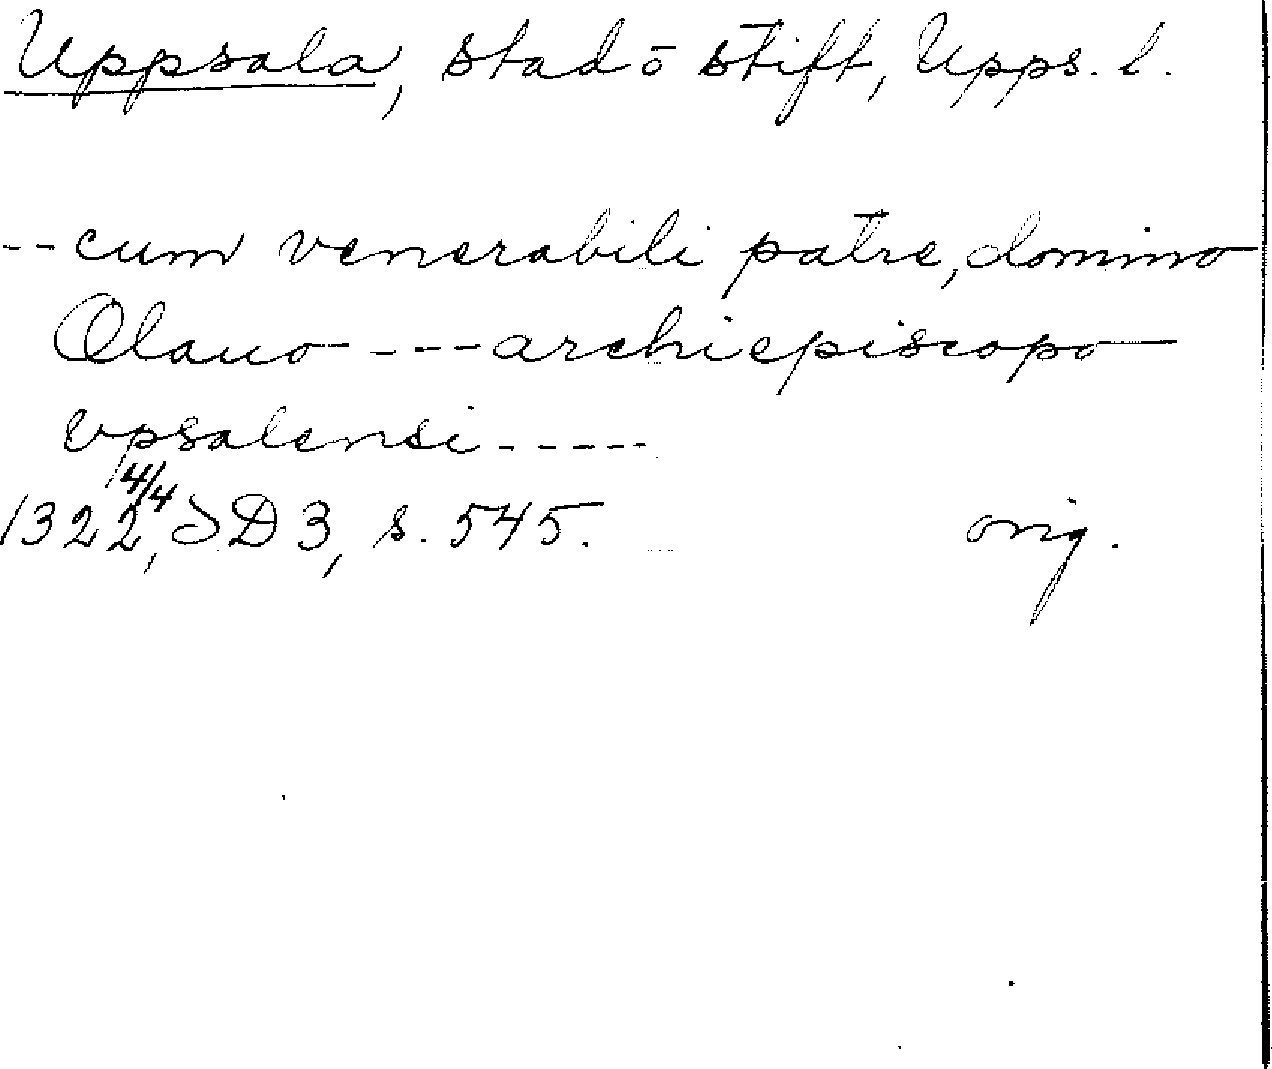 Uppsala, stad o stift, Upps. l.
-- cum venerabili patre, domino
Olauo ---- archiepiscopo
vpsalensi -----
1322 4/4, SD 3, s. 545. orig.